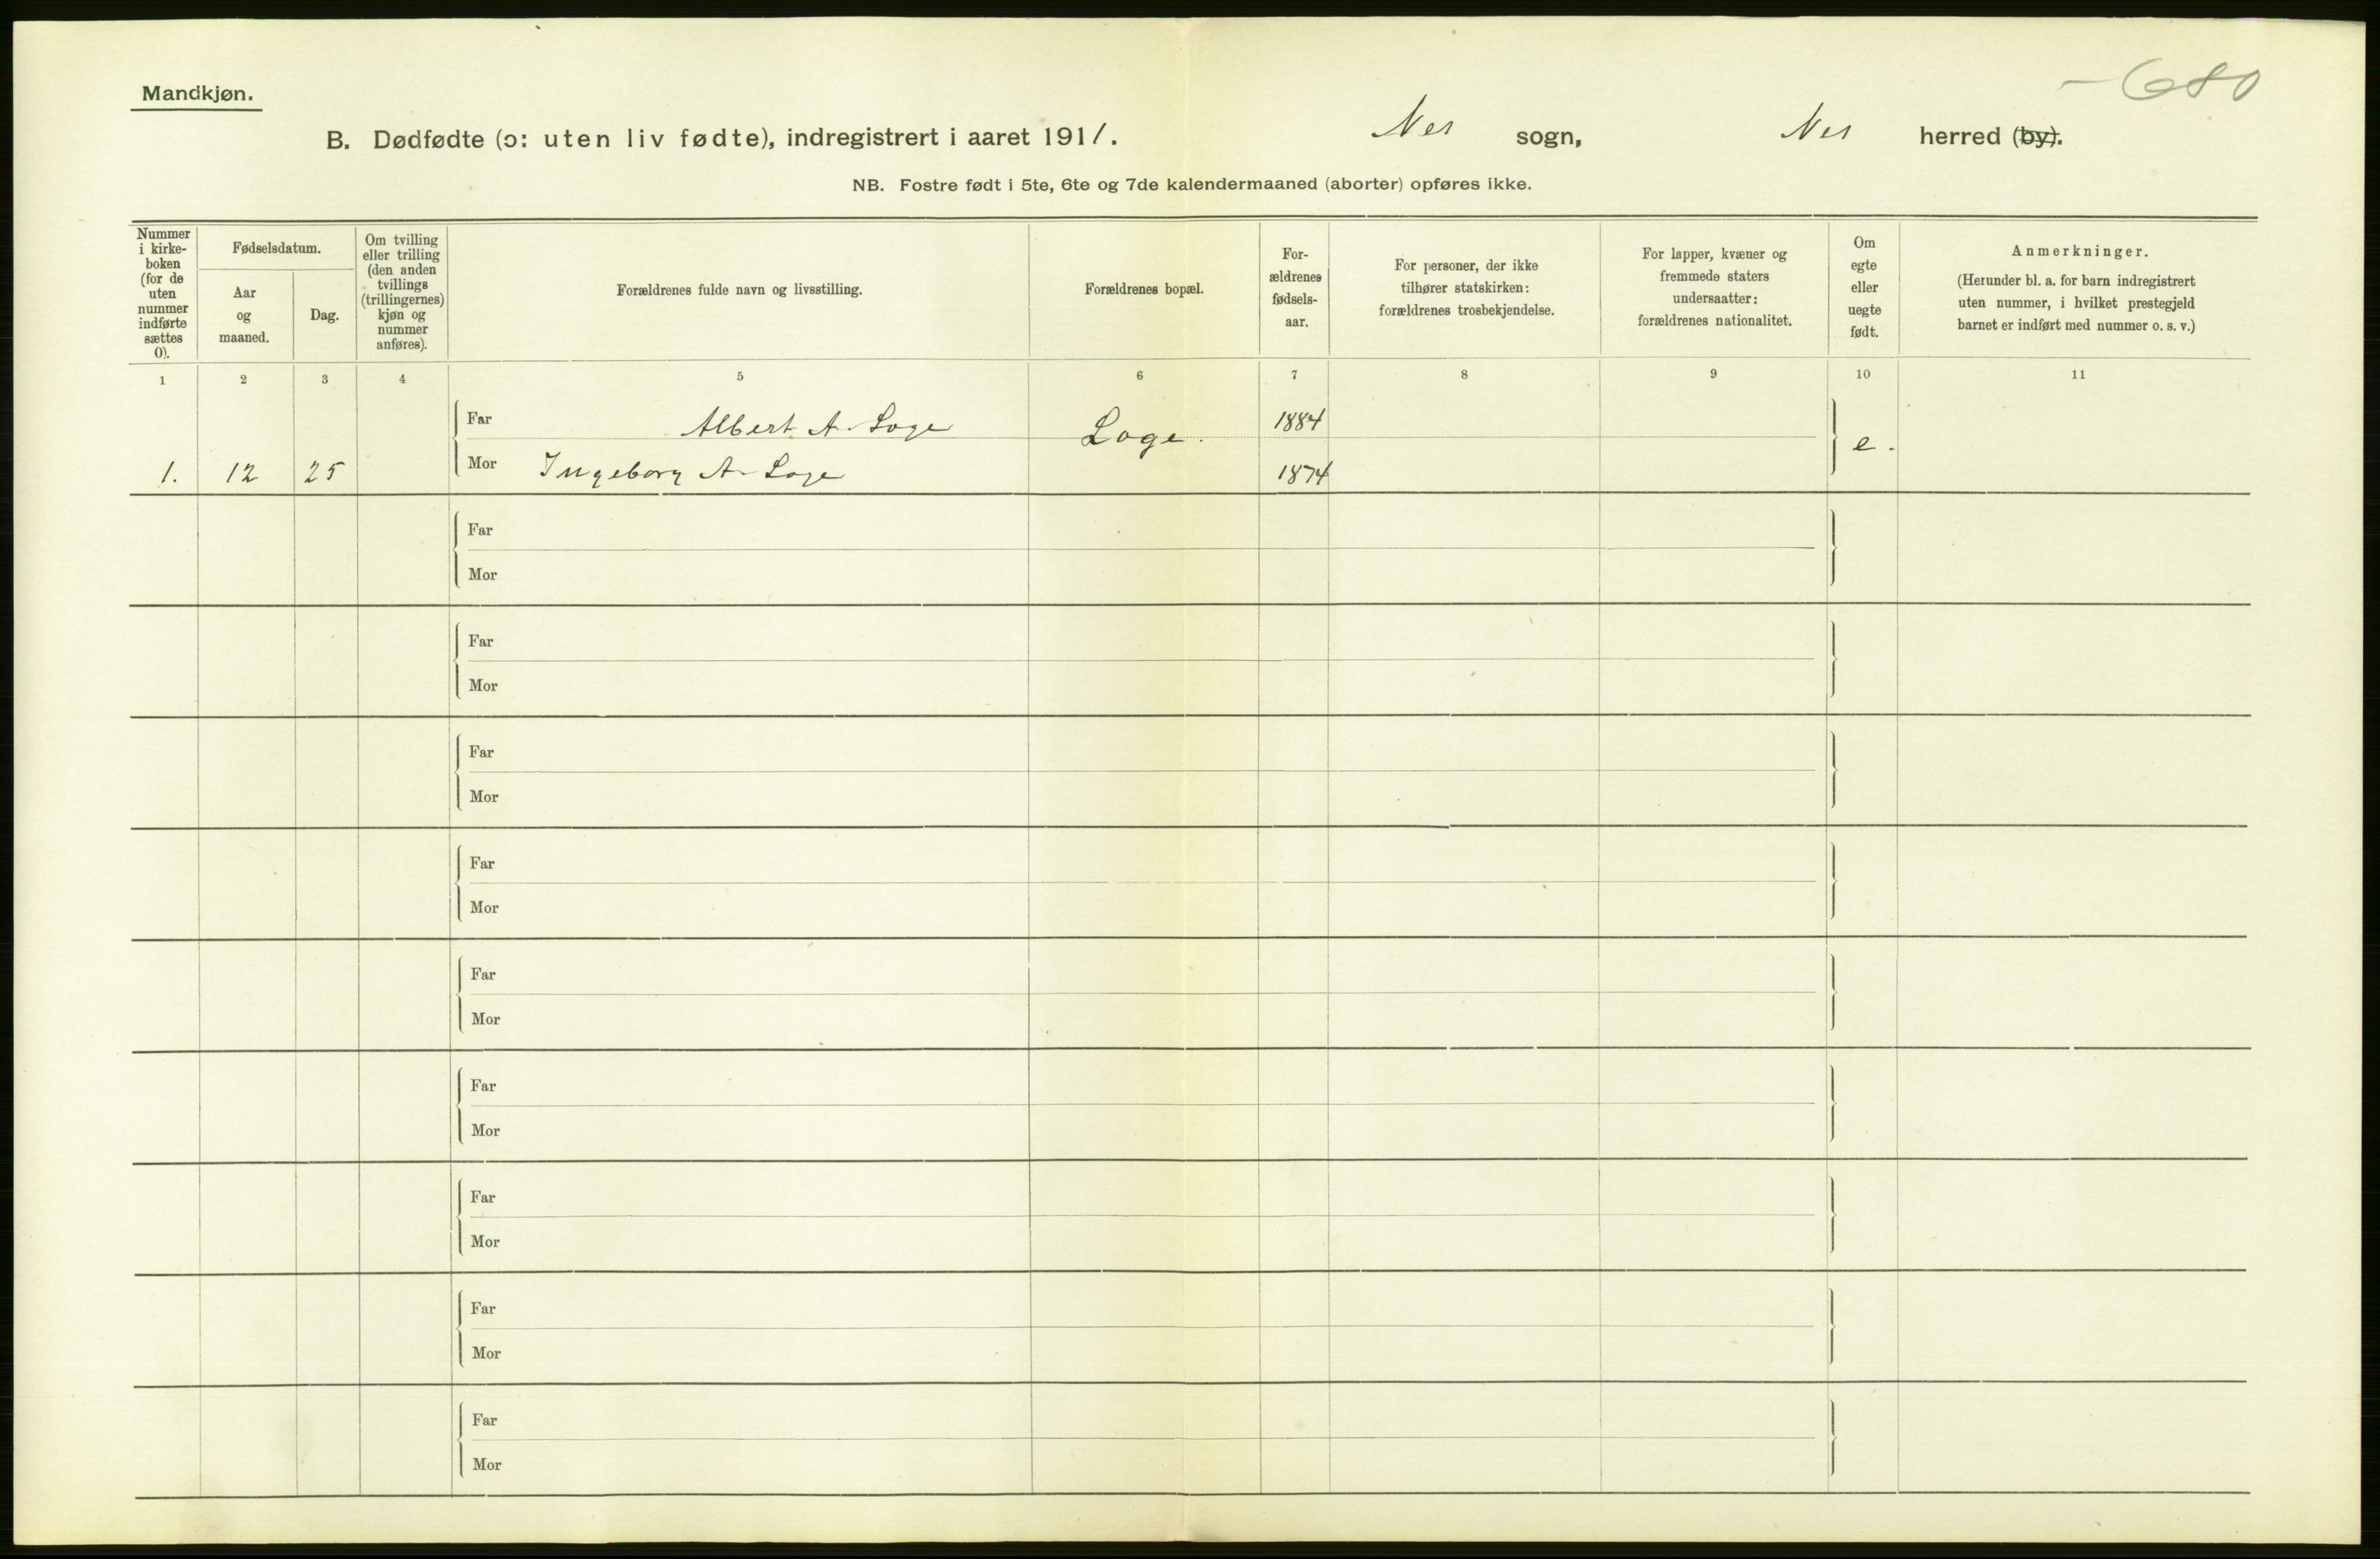 - 680
Mandkjøn.
B. Dødfødte (ɔ: uten liv fødte), indregistrert i aaret 1911. Nes sogn, Nes herred (by).
NB. Fostre født i 5te, 6te og 7de kalendermaaned (aborter) opføres ikke.
Nummer
i kirke-
boken
(for de
uten
nummer
indførte
sættes
0).
Fødselsdatum.
Aar
og
maaned.
Dag.
Om tvilling
eller trilling
(den anden
tvillings
(trillingernes)
kjøn og
nummer
anføres).
Forældrenes fulde navn og livsstilling.
Forældrenes bopæl.
For-
ældrenes
fødsels-
aar.
For personer, der ikke
tilhører statskirken:
forældrenes trosbekjendelse.
For lapper, kvæner og
fremmede staters
undersaatter:
forældrenes nationalitet.
Om
egte
eller
uegte
født.
Anmerkninger.
(Herunder bl. a. for barn indregistrert
uten nummer, i hvilket prestegjeld
barnet er indført med nummer o. s. v.)
1 2 3 4 5 6 7 8 9 10 11
Far Albert A. Loge Loge. 1884 e.
1. 12 25 Mor Ingeborg A. Loge 1874
Far
Mor
Far
Mor
Far
Mor
Far
Mor
Far
Mor
Far
Mor
Far
Mor
Far
Mor
Far
Mor